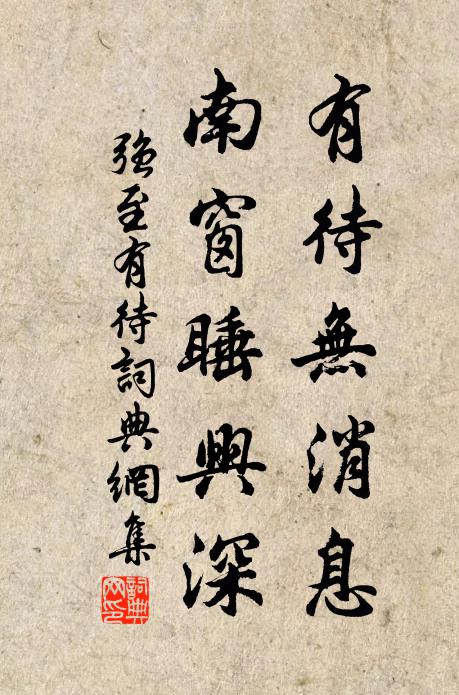 有待無消息
南窗睡興深
強至有待詞典網集
詞典網印